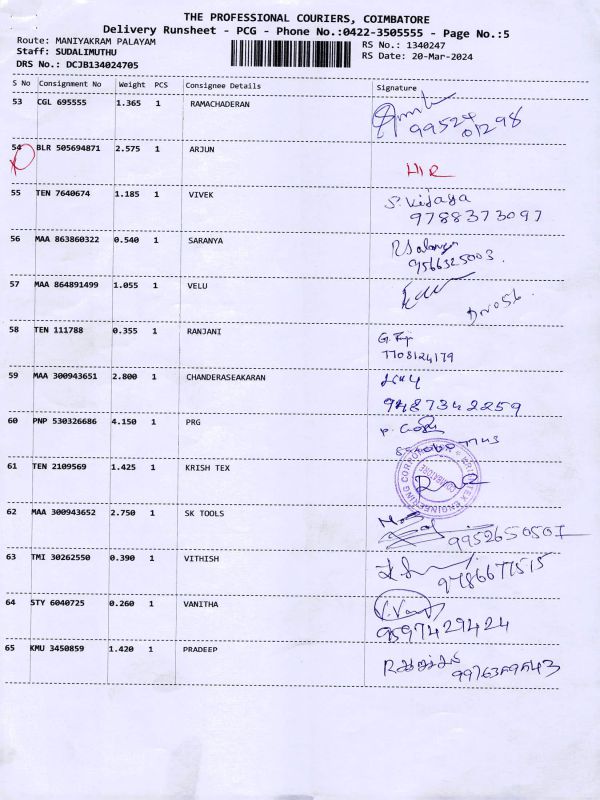 THE PROFESSIONAL COURIERS, COIMBATORE
Delivery Runsheet - PCG - Phone No.:0422-3505555 - Page No.:5
Route: MANIYAKRAM PALAYAM
RS No.: 1340247
Staff: SUDALIMUTHU
RS Date: 20-Mar-2024
DRS No.: DCJB134024705
S No Consignment No Weight PCS Consignee Details Signature
53 CGL 695555 1.365 1 RAMACHADERAN
99524
01298
54 BLR 505694871 2.575 1 ARJUN
55 TEN 7640674 1.185 1 VIVEK S. Vijaya
9788373097
56 MAA 863860322 0.540 1 SARANYA
9566325003
57 MAA 864891499 1.055 1 VELU
58 TEN 111788 0.355 1 RANJANI
7708124179
59 MAA 300943651 2.800 1 CHANDERASEAKARAN
9487342259
60 PNP 530326686 4.150 1 PRG
61 TEN 2109569 1.425 1 KRISH TEX
62 MAA 300943652 2.750 1 SK TOOLS
9952650507
63 TMI 30262550 0.390 1 VITHISH
9786677515
64 STY 6040725 0.260 1 VANITHA
9597429424
65 KMU 3450859 1.420 1 PRADEEP